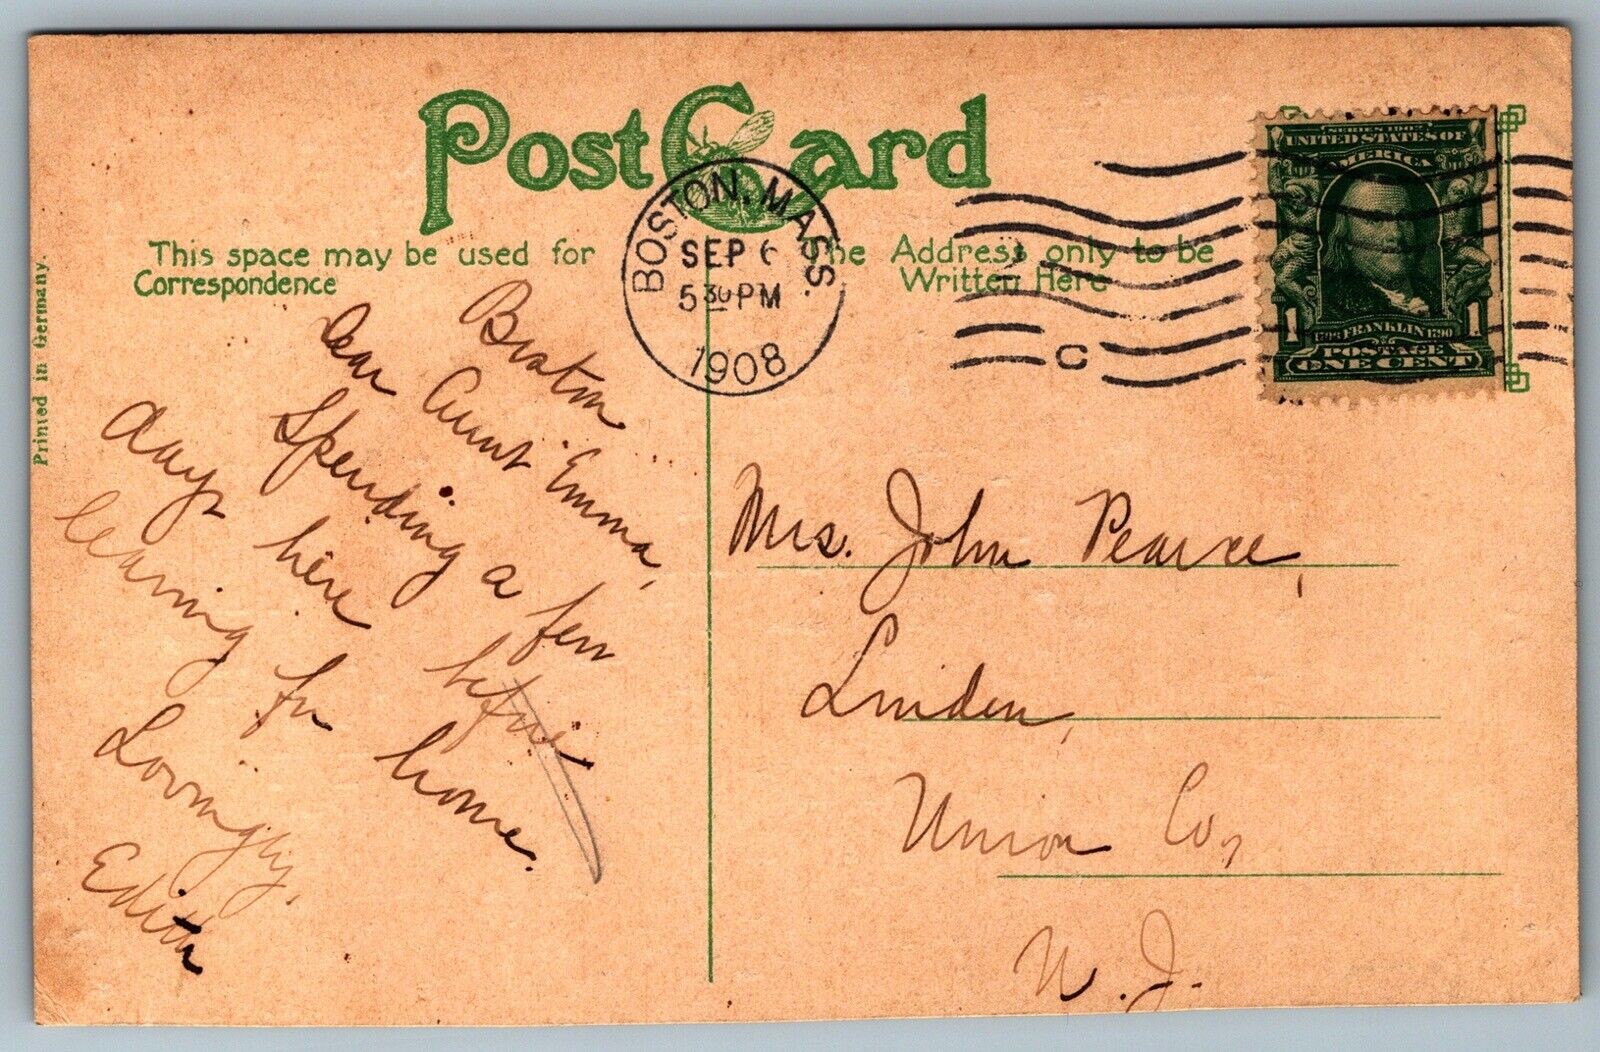 Post Card
This space may be used for
Correspondence
The Address only to be
Written Here
Printed in Germany.
BOSTON, MASS.
SEP 6
5 30 PM
1908
C
UNITED STATES OF
AMERICA
1 FRANKLIN 1
1706 1790
POSTAGE
ONE CENT
Boston
Dear Aunt Emma,
Spending a few
days here before
leaving for home.
Lovingly,
Edith
Mrs. John Pearce,
Linden,
Union Co,
N. J.